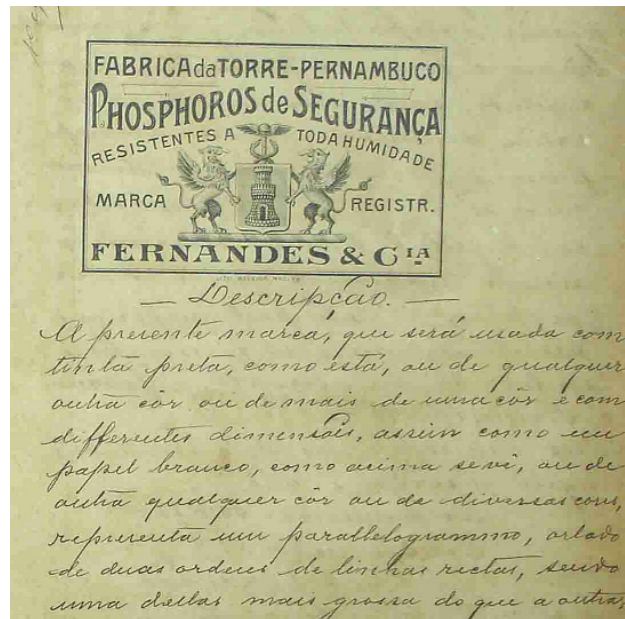 FABRICA da TORRE-PERNAMBUCO
PHOSPHOROS de SEGURANÇA
RESISTENTES A TODA HUMIDADE
MARCA REGISTR.
FERNANDES & CIA
— Descripção. —
A presente marca, que será usada com
tinta preta, como está, ou de qualquer
outra côr ou de mais de uma côr e com
differentes dimensões, assim como em
papel branco, como acima se vê, ou de
outra qualquer côr ou de diversas cores,
representa um parallelogrammo, orlado
de duas ordens de linhas rectas, sendo
uma dellas mais grossa do que a outra,